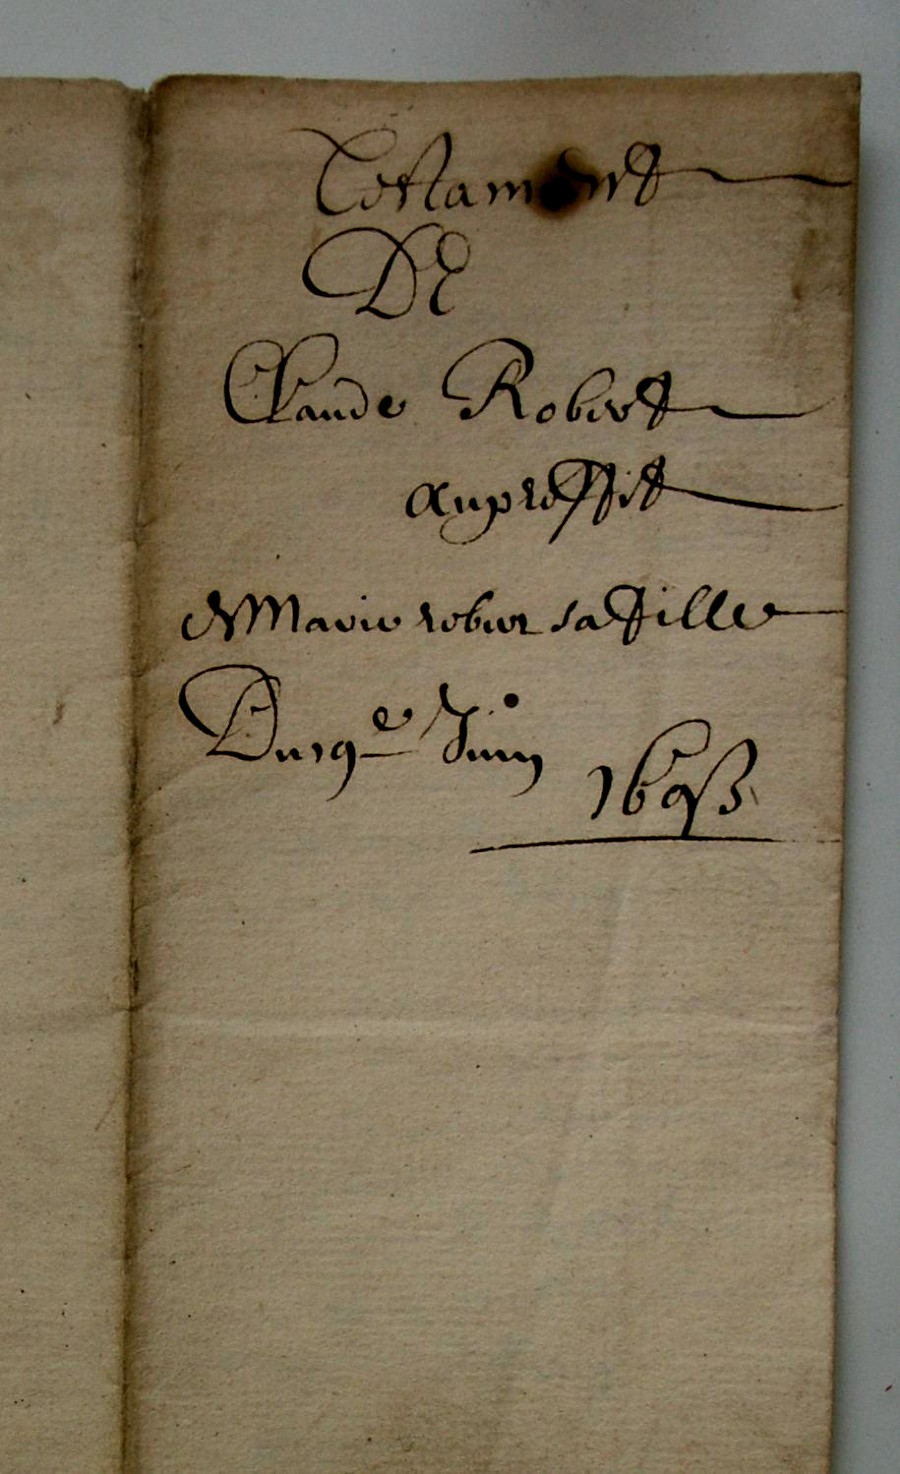 Testament
DE
Claude Robert
au proffit
de Marie robert sa fille
Du 19e Juin
1693